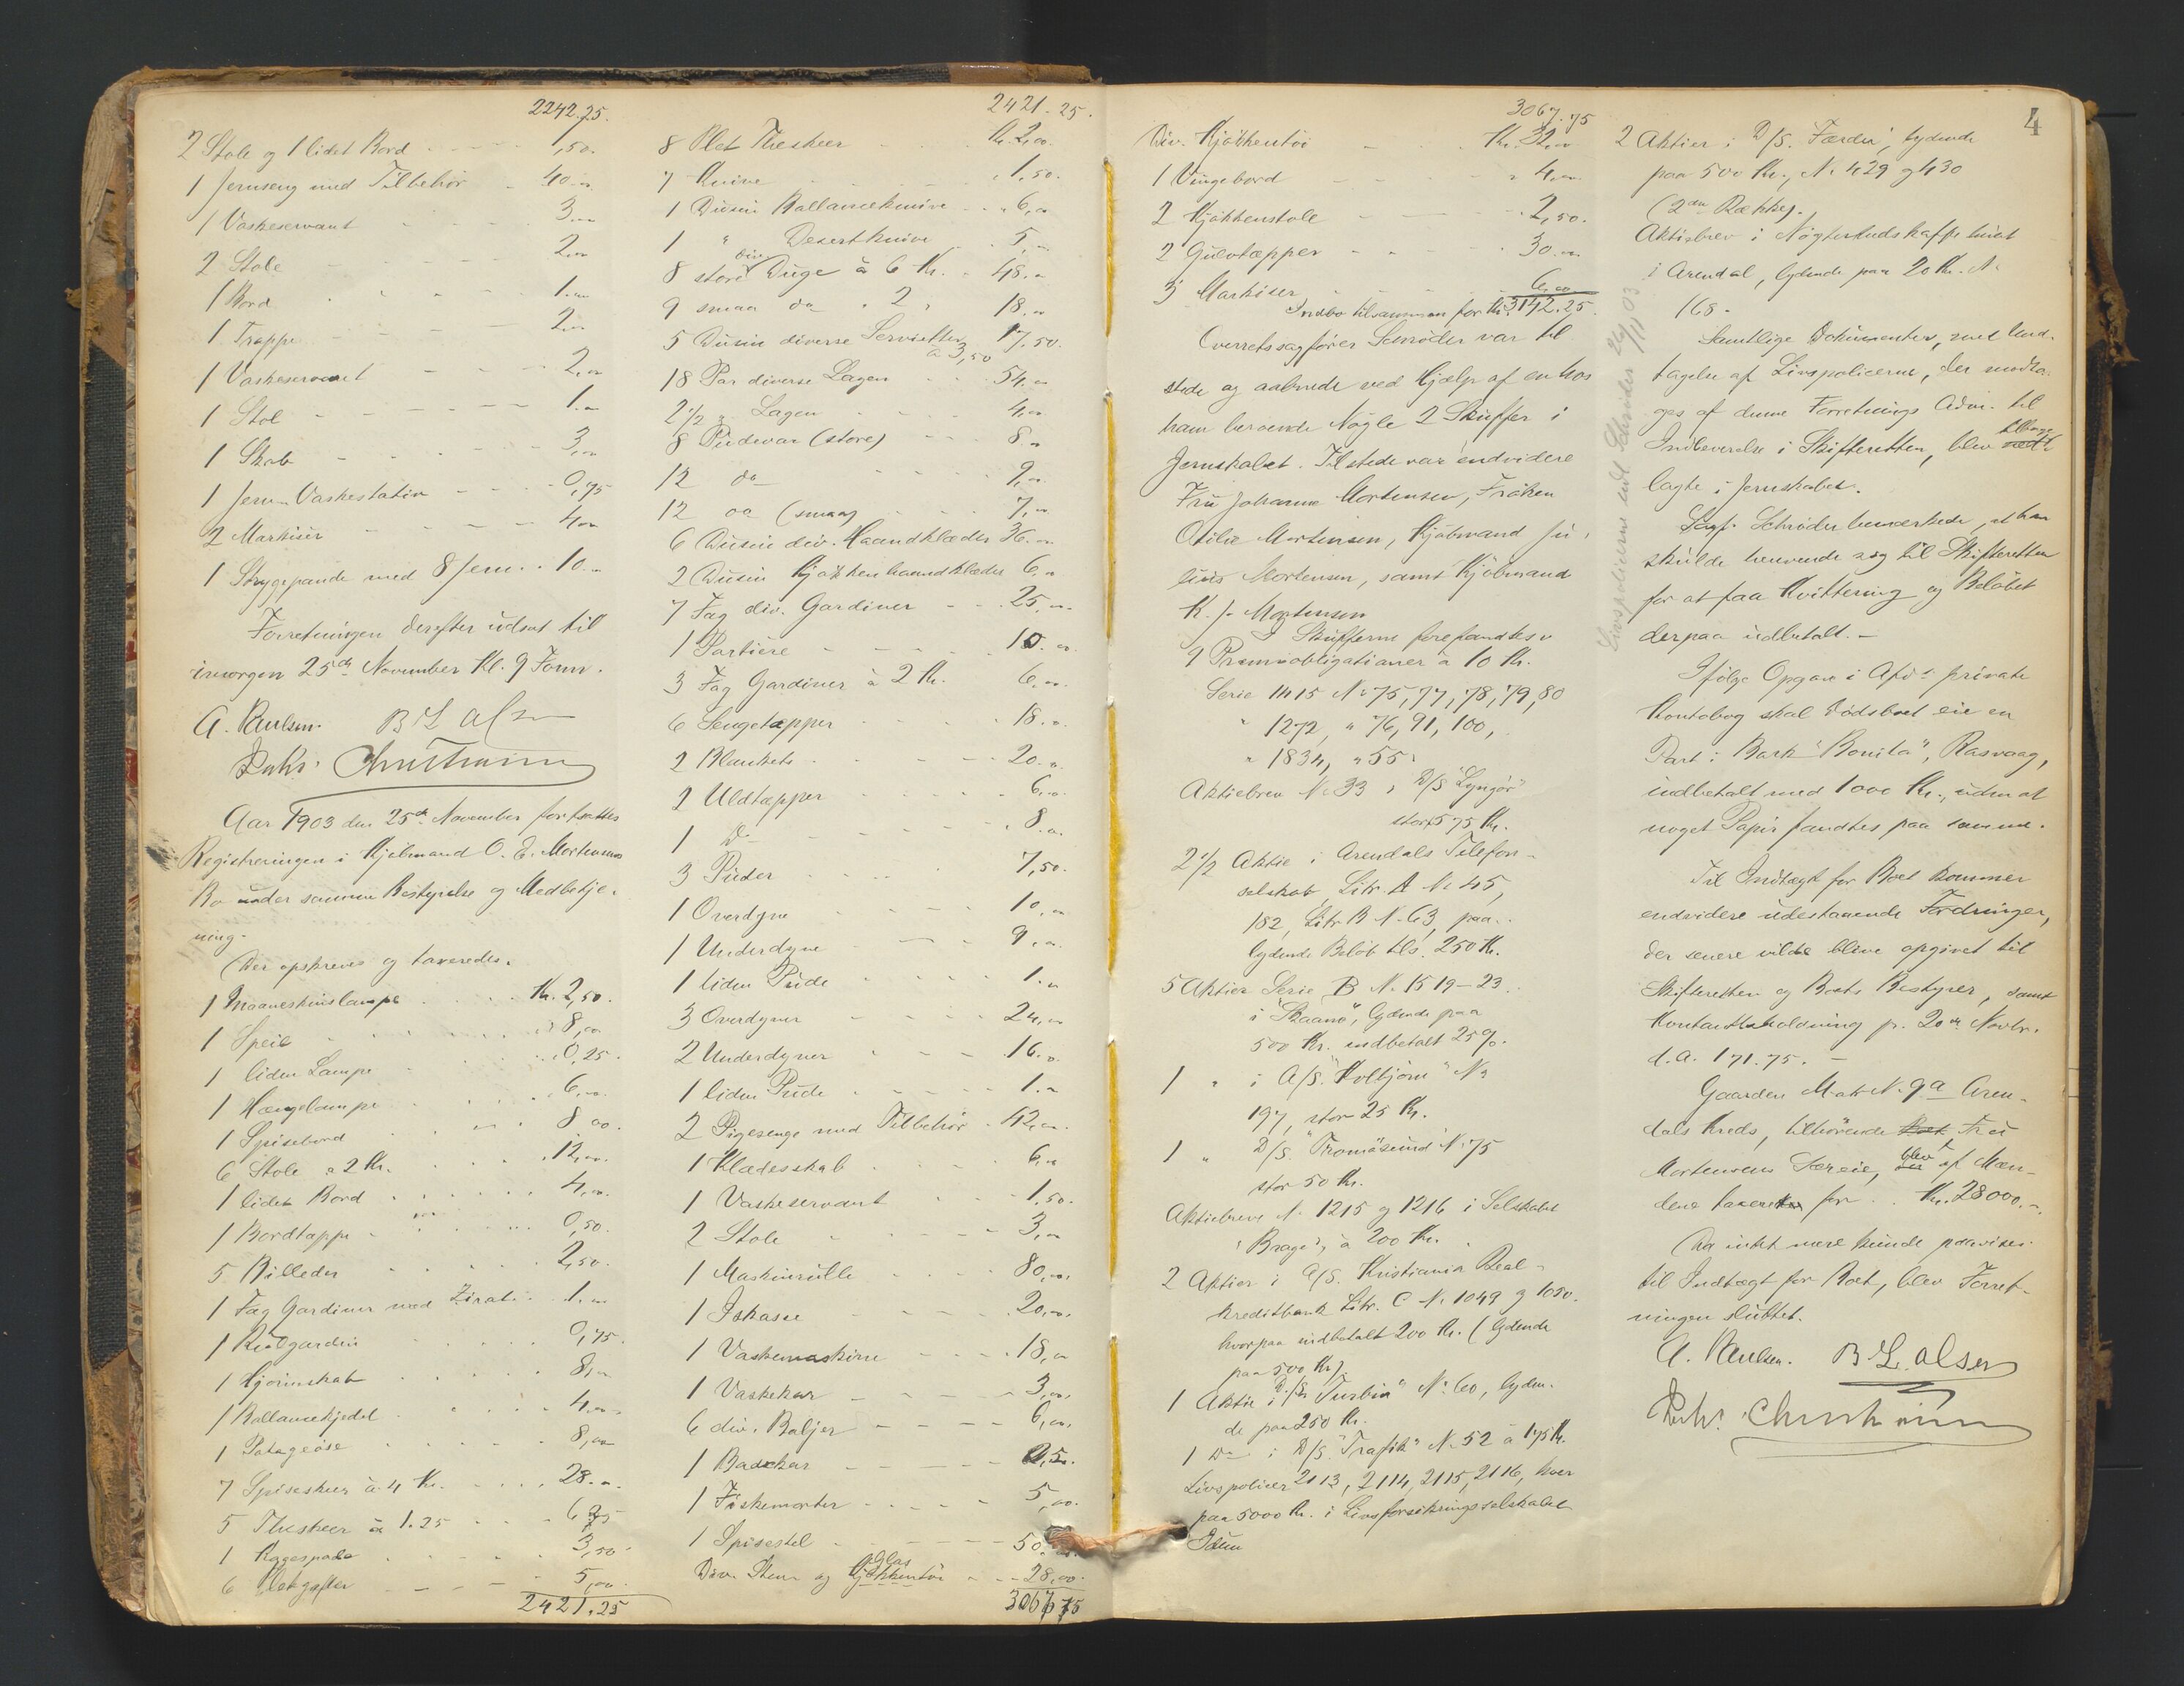 2242.25.
2 Stole og 1 lidet Bord 1,50
1 Jernseng med Tilbehør 40.00
1 Vaskeservant 3.00
2 Stole 2.00
1 Bord 1.00
1 Trappe 2.00
1 Vaskeservant 2.00
1 Stol 1.00
1 Skab 3.00
1 Jern-Vaskestativ 0,75
2 Markiser 4.00
1 Strygepande med 8 Jern 10.00
Forretningen derefter udsat til
imorgen 25de November Kl. 9 Form.
A. Paulsen. B L Olsen
Aar 1903 den 25de November fortsattes
Registreringen i Kjøbmand O. E. Mortensens
Bo under samme Bestyrelse og Medbetje-
ning.
Der opskreves og taxeredes:
1 Maaneskinslampe Kr. 2,50.
1 Speil 8,00
1 liden Lampe 0,25.
1 Hængelampe 6,00.
1 Spisebord 8 00.
6 Stole a 2 Kr. 12,00.
1 lidet Bord 4,00.
1 Bordtæppe 0,50.
5 Billeder 2,50.
1 Fag Gardiner med Zirat 1.00
1 Rulgardin 0,75.
1 Hjørneskab 8,00
1 Ballancekjedel 4.00
1 Potageøse 8,00
7 Spiseskeer à 4 Kr. 28.00
5 Theskeer à 1.25 6 25
1 Kagespade 3,50.
6 Pletgafler 5,00.
2421.25
2421-25.
8 Plet Theskeer Kr. 2,00.
7 Knive 1,50.
1 Dusin Ballanceknive 6,00
1 " Desertknive 5,00
8 store div. Duge à 6 Kr. 48.00
9 smaa do " 2 " 18.00
5 Dusin diverse Servietter à 3,50 17,50.
18 Par diverse Lagen 54,00
2 1/2 " Lagen 4,00.
8 Pudevar (store) 8 00
12 do 9,00.
12 do (smaa) 7,00
6 Dusin div. Haandklæder 36.00
2 Dusin Kjøkkenhaandklæder 6,00
7 Fag div. Gardiner 25,00.
1 Portiere 10.00
3 Fag Gardiner à 2 Kr. 6,00.
6 Sengetæpper 18.00
2 Blankets 20.00
2 Uldtæpper 6.00
1 Do 8.00
3 Puder 7,50.
1 Overdyne 10,00
1 Underdyne 9,00.
1 liden Pude 1.00
3 Overdyner 24,00
2 Underdyner 16.00
1 liden Pude 1.00
2 Pigesenge med Tilbehør 42,00.
1 Klædesskab 6,00
1 Vaskeservant 1,50.
2 Stole 3,00
1 Maskinrulle 80,00.
1 Iskasse 20,00.
1 Vaskemaskine 18,00
1 Vaskekar 3,00.
6 div. Baljer 6,00.
1 Badekar
1 Fiskemorter 5,00.
1 Spisestel 50,00.
Div. Sten og Glas Kjøkkentøi 28,00.
3067 75
3067.75
Div. Kjøkkentøi Kr. 32,00
1 Vingebord " 4.00
2 Kjøkkenstole 2,50.
2 Gulvtæpper 30.00
3 Markiser 6,00
Indbo tilsammen for Kr. 3142.25.
Overretssagfører Schrøder var til
stede og aabnede ved Hjælp af en hos
ham beroende Nøgle 2 Skuffer i
Jernskabet. Tilstede var endvidere
Fru Johanne Mortensen, Frøken
Otilie Mortensen, Kjøbmand Ju-
lius Mortensen, samt Kjøbmand
K. J. Mortensen
I Skufferne forefandtes:
9 Premieobligationer a 10 Kr.
Serie 1115 No 75, 77, 78, 79, 80
" 1272, " 76, 91, 100,
" 1834, " 55.
Aktiebrev No 33 i D/S "Lyngør"
stort 575 Kr.
2 1/2 Aktie i Arendals Telefon-
selskab, Litr. A No 45,
182, Litr. B No 63, paa-
lydende Beløb tils. 250 Kr.
5 Aktier Serie B No 1519-23
i "Skaanø", lydende paa
500 Kr. indbetalt 25%.
1 " i A/S. "Kolbjørn" No
197, stor 25 Kr.
1 " D/S. "Tromøsund" No 75
stor 50 Kr.
Aktiebreve No 1215 og 1216 i Selskabet
"Brage", à 200 Kr.
2 Aktier i A/S. Kristiania Real-
kreditbank Litr. C No 1049 og 1050.
hvorpaa indbetalt 200 Kr. (lydende
paa 500 Kr.)
1 Aktie i D/S. "Turbin" No 60, lyden-
de paa 250 Kr.
1 Do i D/S. "Trafik" No 52 à 175 Kr.
Livspolicer 2113, 2114, 2115, 2116, hver
paa 5000 Kr. i Livsforsikringsselskabet
Idun
Livspolicerne udl. Schrøder 26/11 03.
4
2 Aktier i D/S. "Færder", lydende
paa 500 Kr., No 429 og 430
(2den Række).
Aktiebrev i Nøgterhedskaffehuset
i Arendal, lydende paa 20 Kr. No
168.
Samtlige Dokumenter, med Und-
tagelse af Livspolicerne, der modta-
ges af denne Forretnings Adm. til
Indleverelse i Skifteretten, blev tilbage
lagte i Jernskabet.
Sagf. Schrøder bemærkede, at han
skulde henvende sig til Skifteretten
for at faa Kvittering og Beløbet
derpaa udbetalt. -
Ifølge Opgave i Afd.s private
Kontobog skal Dødsboet eie en
Part i Bark "Bonita", Rasvaag,
indbetalt med 1000 Kr., uden at
noget Papir fandtes paa samme.
Til Indtægt for Boet kommer
endvidere udestaaende Fordringer,
der senere vilde blive opgivet til
Skifteretten og Boets Bestyrer, samt
Kontantbeholdning pr. 20de Novbr.
d.A. 171.75. -
Gaarden Matr. No. 9a Aren-
dals Kreds, tilhørende Fru
Mortensens Særeie, blev af Mæn-
dene taxeret for Kr. 28000.-
Da intet mere kunde paavises
til Indtægt for Boet, blev Forret-
ningen sluttet.
A. Paulsen. B L. Olsen